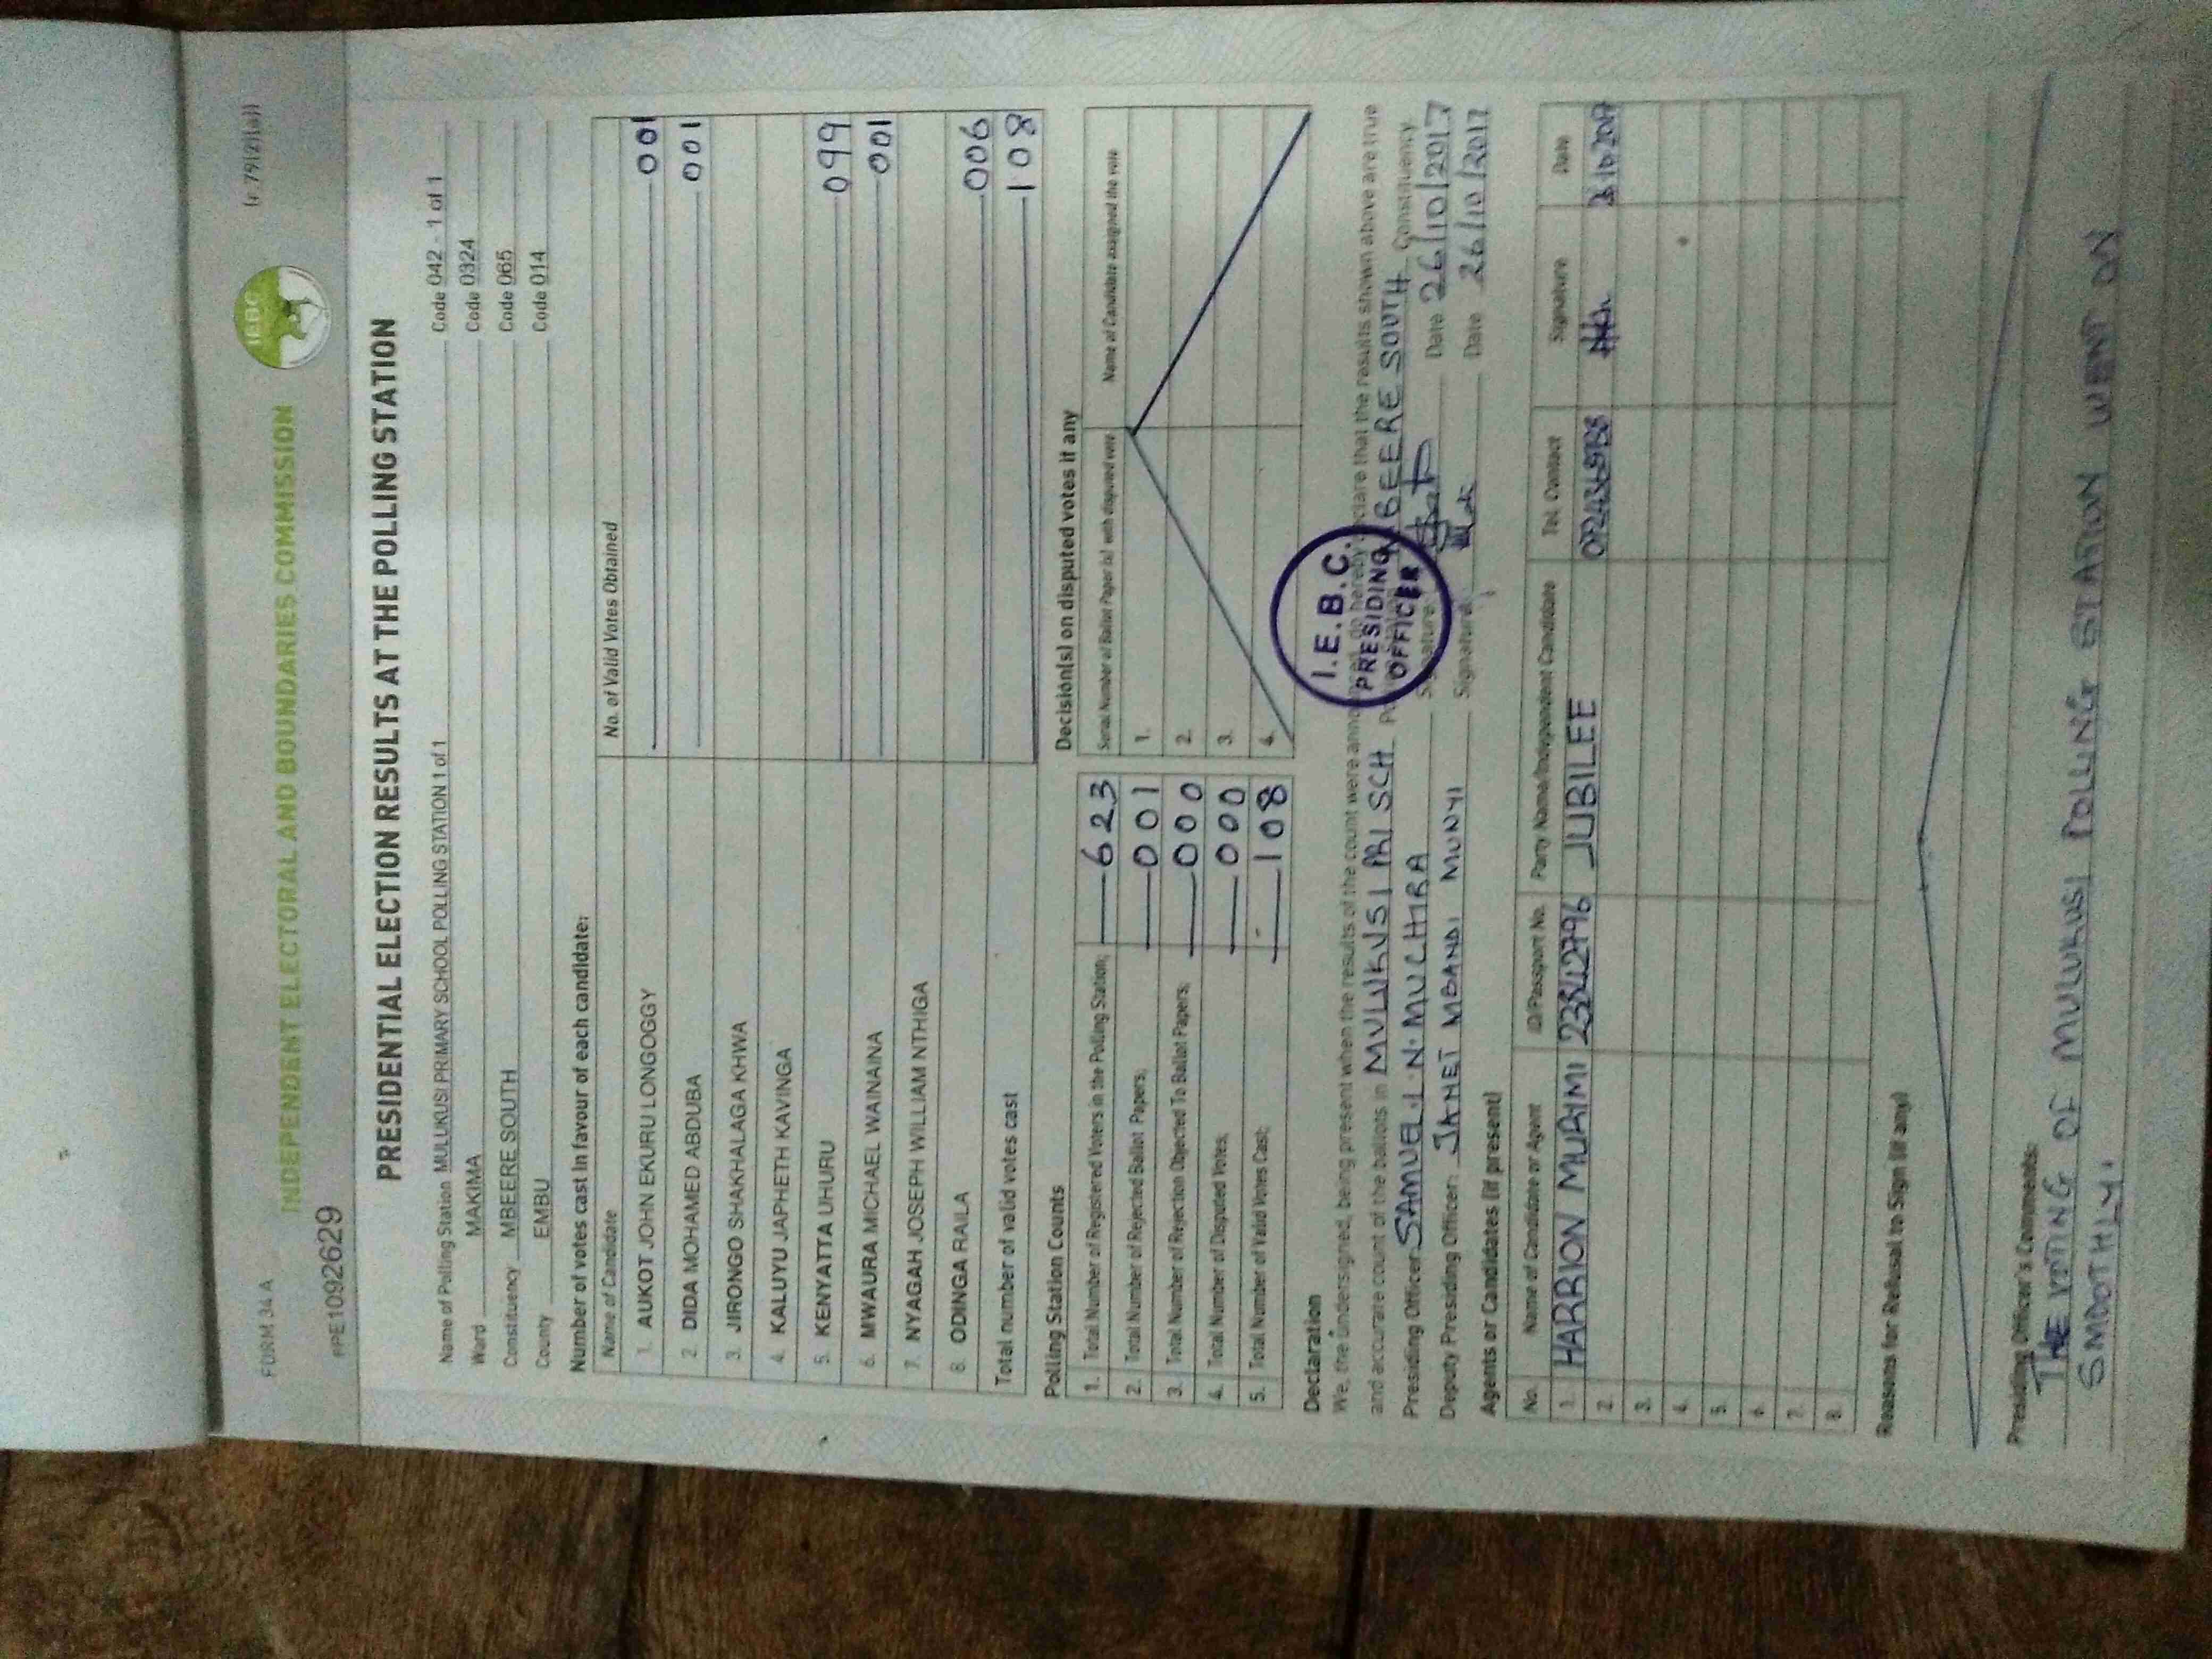 FORM 34 A
INDEPENDENT ELECTORAL AND BOUNDARIES COMMISSION
IEBC
(r.79(2)(a))
PRE1092629
PRESIDENTIAL ELECTION RESULTS AT THE POLLING STATION
Name of Polling Station MULUKUSI PRIMARY SCHOOL POLLING STATION 1 of 1 Code 042 - 1 of 1
Ward MAKIMA Code 0324
Constituency MBEERE SOUTH Code 065
County EMBU Code 014
Number of votes cast in favour of each candidate:
Name of Candidate No. of Valid Votes Obtained
1. AUKOT JOHN EKURU LONGOGGY 001
2. DIDA MOHAMED ABDUBA 001
3. JIRONGO SHAKHALAGA KHWA
4. KALUYU JAPHETH KAVINGA
5. KENYATTA UHURU 099
6. MWAURA MICHAEL WAINAINA 001
7. NYAGAH JOSEPH WILLIAM NTHIGA
8. ODINGA RAILA 006
Total number of valid votes cast 108
Polling Station Counts
1. Total Number of Registered Voters in the Polling Station; 623
2. Total Number of Rejected Ballot Papers; 001
3. Total Number of Rejection Objected To Ballot Papers; 000
4. Total Number of Disputed Votes; 000
5. Total Number of Valid Votes Cast; 108
Decision(s) on disputed votes if any
Serial Number of Ballot Paper (s) with disputed vote Name of Candidate assigned the vote
1.
2.
3.
4.
Declaration
We, the undersigned, being present when the results of the count were do hereby declare that the results shown above are true
and accurate count of the ballots in MULUKUSI PRI SCH MBEERE SOUTH Constituency
I.E.B.C.
PRESIDING
OFFICER
Presiding Officer: SAMUEL N. MUCHIRA Signature Date 26/10/2017
Deputy Presiding Officer: JANET MBANDI MUNYI Signature Date 26/10/2017
Agents or Candidates (if present)
No. Name of Candidate or Agent ID/Passport No. Party Name/Independent Candidate Tel. Contact Signature Date
1. HARRION MURIMI JUBILEE 26/10/2017
2.
3.
4.
5.
6.
7.
8.
Reasons for Refusal to Sign (if any)
Presiding Officer's Comments:
THE VOTING OF MULUKUSI POLLING STATION WENT ON
SMOOTHLY.